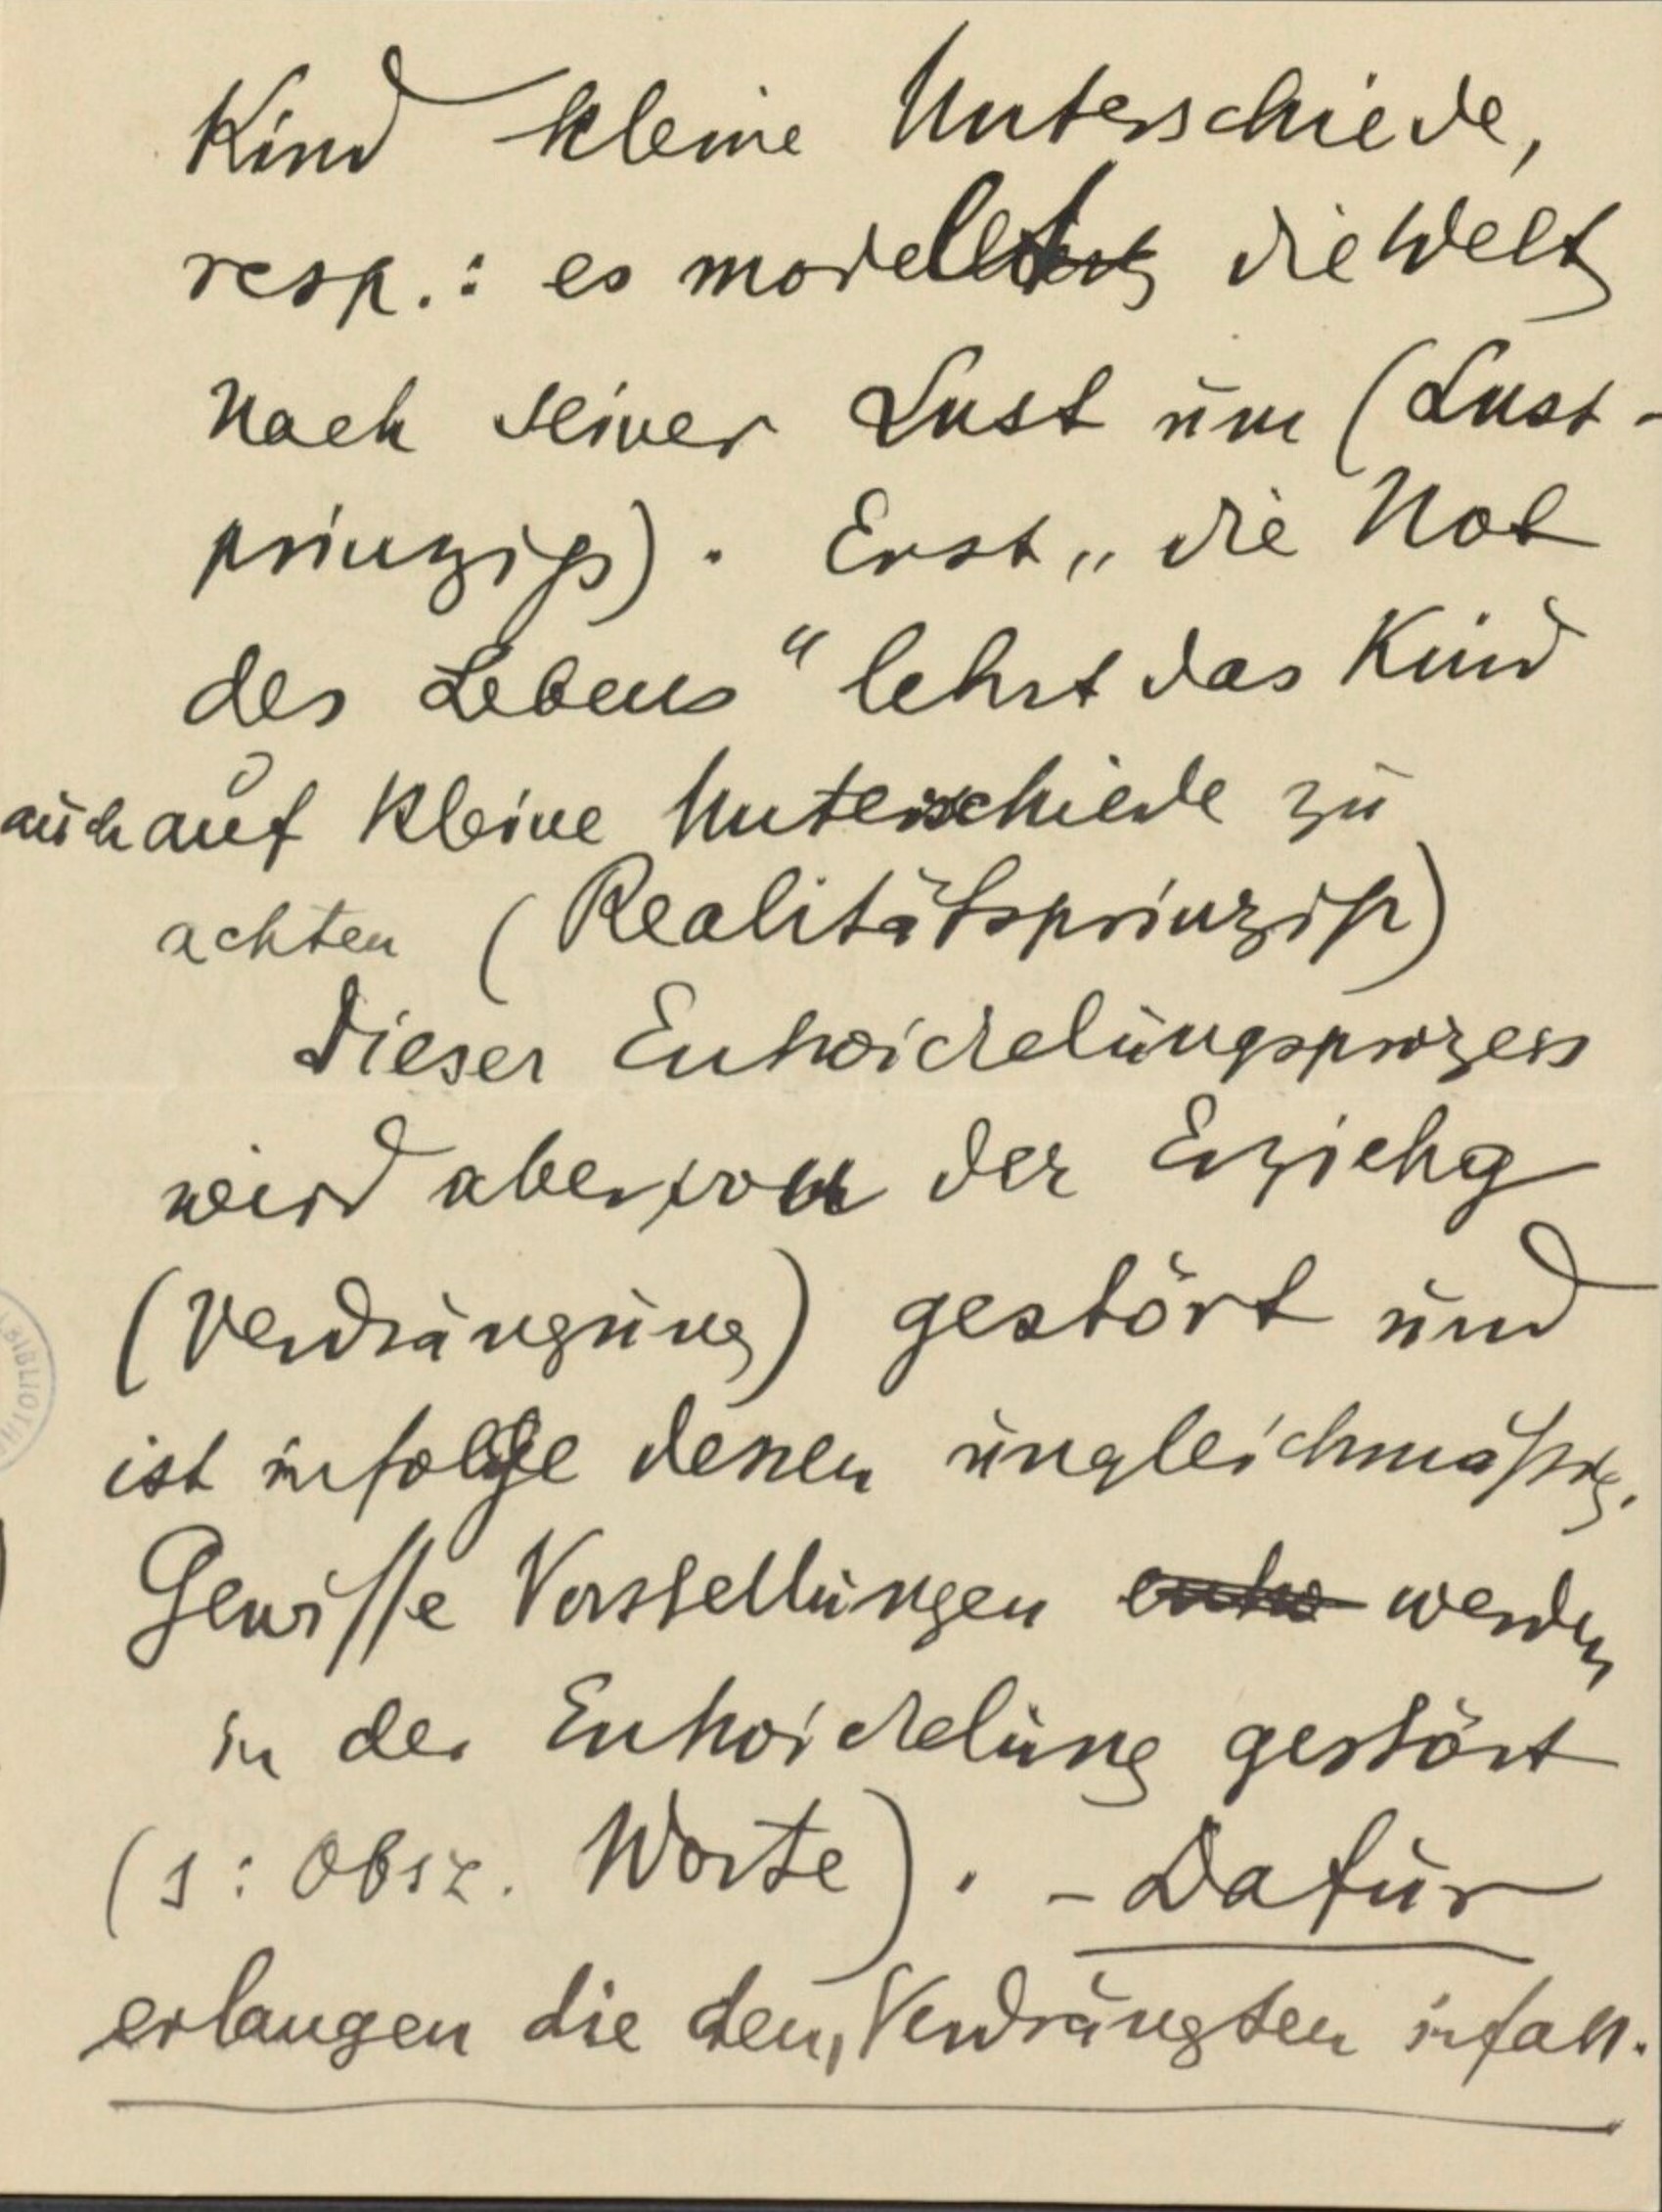 Kind kleine Unterschiede,
resp.: es modelt die Welt
nach seiner Lust um (Lust-
prinzip). Erst „die Not
des Lebens“ lehrt das Kind
auch auf kleine Unterschiede zu
achten (Realitätsprinzip)
Dieser Entwickelungsprozess
wird aber von der Erziehg
(Verdrängung) gestört und
ist infolge dessen ungleichmäßig.
Gewisse Vorstellungen entw werden
in der Entwickelung gestört
(s: Obsz. Worte). - Dafür
erlangen die dem Verdrängten
BIBLIOTH